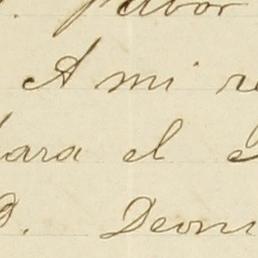 favor
A mi re
para el
D. Deoni